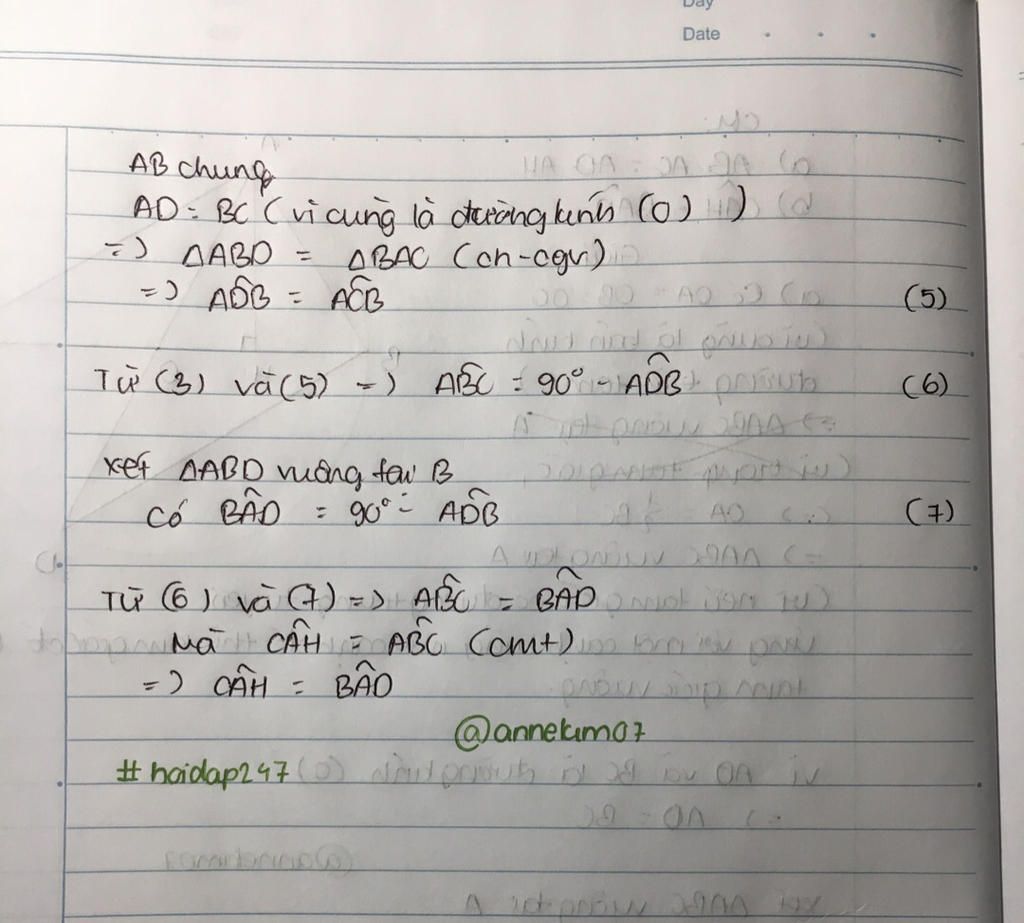 Day
Date
AB chung
AD = BC (vì cùng là đường kính (O) )
=) ΔABD = ΔBAC (ch-cgv)
=) ADB̂ = AĈB (5)
Từ (3) và (5) =) AB̂C = 90° - AD̂B (6)
Xét ΔABD vuông tại B
Có BÂD = 90° - AD̂B (7)
Từ (6) và (7) =) AB̂C = BÂD
Mà CÂH = AB̂C (cmt)
=) CÂH = BÂD
@annekim07
#hoidap247